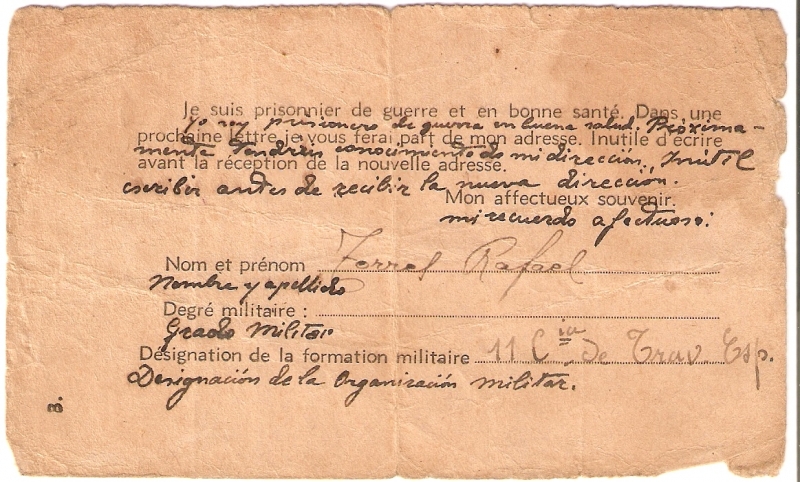 Je suis prisonnier de guerre et en bonne santé. Dans une
yo soy prisionero de guerra en buena salud. Próxima-
prochaine lettre je vous ferai part de mon adresse. Inutile d'écrire
mente tendréis conocimiento de mi direccion. Inútil
avant la réception de la nouvelle adresse.
escribir antes de recibir la nueva dirección.
Mon affectueux souvenir.
mi recuerdo afectuoso:
Nom et prénom Ferrel Rafael
Nombre y apellido
Degré militaire :
Grado Militar
Désignation de la formation militaire 11 Cia de Trav. Esp.
Designación de la Organización militar.
8.